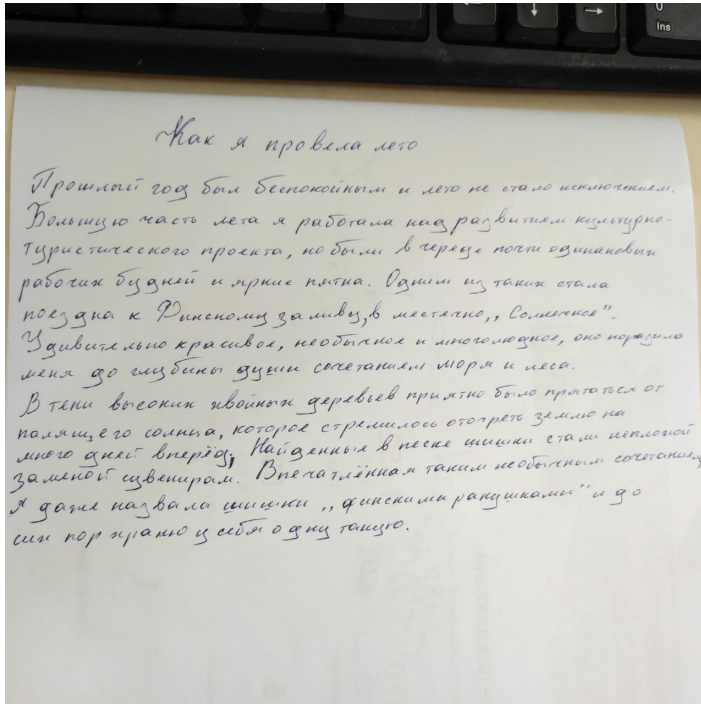 U
Ins
←
↓
→
Как я провела лето
Прошлый год был беспокойным и лето не стало исключением.
Большую часть лета я работала над развитием культурно-
туристического проекта, но были в череде почти одинаковых
рабочих будней и яркие пятна. Одним из таких стала
поездка к Финскому заливу, в местечко „Солнечное".
Удивительно красивое, необычное и многолюдное, оно поразило
меня до глубины души сочетанием моря и леса.
В тени высоких хвойных деревьев приятно было прятаться от
палящего солнца, которое стремилось отогреть землю на
много дней вперёд. Найденные в песке шишки стали неплохой
заменой сувенирам. Впечатлённая таким необычным сочетанием,
я даже назвала шишки „финскими ракушками" и до
сих пор храню у себя одну такую.